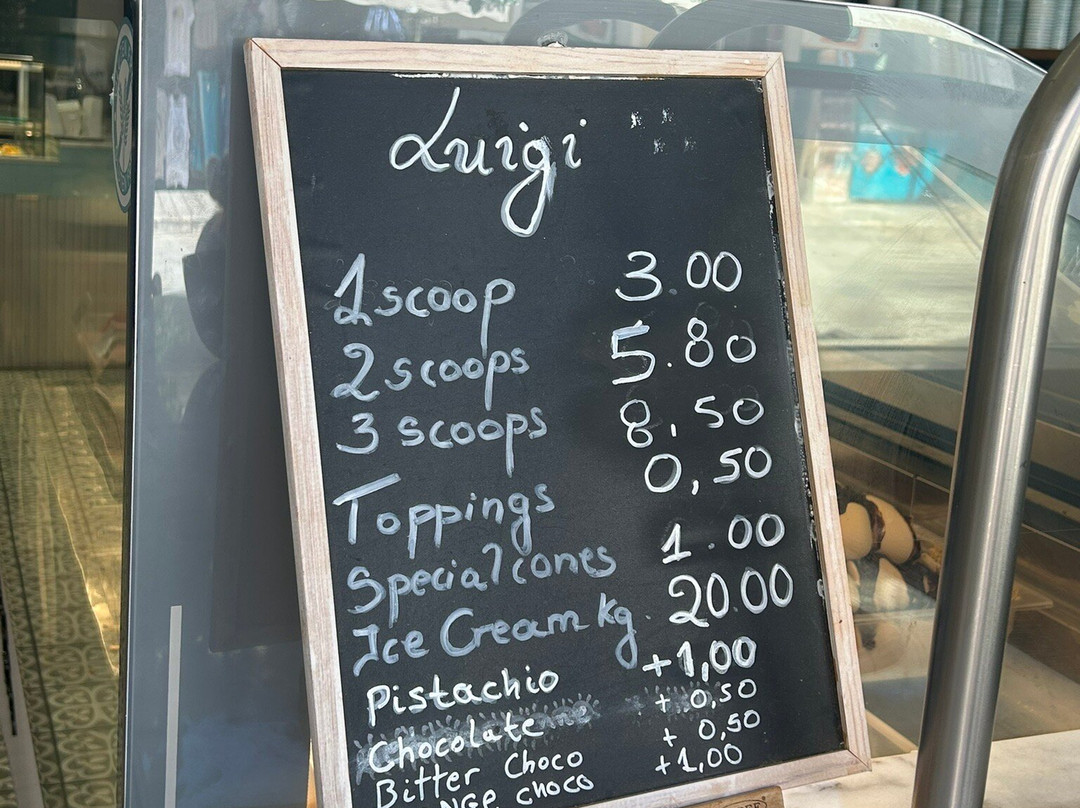 Luigi
1 scoop 3.00
2 scoops 5.80
3 scoops 8,50
Toppings 0,50
Special cones 1.00
Ice Cream kg. 20.00
Pistachio +1,00
Chocolate + 0,50
Bitter Choco + 0,50
choco +1,00